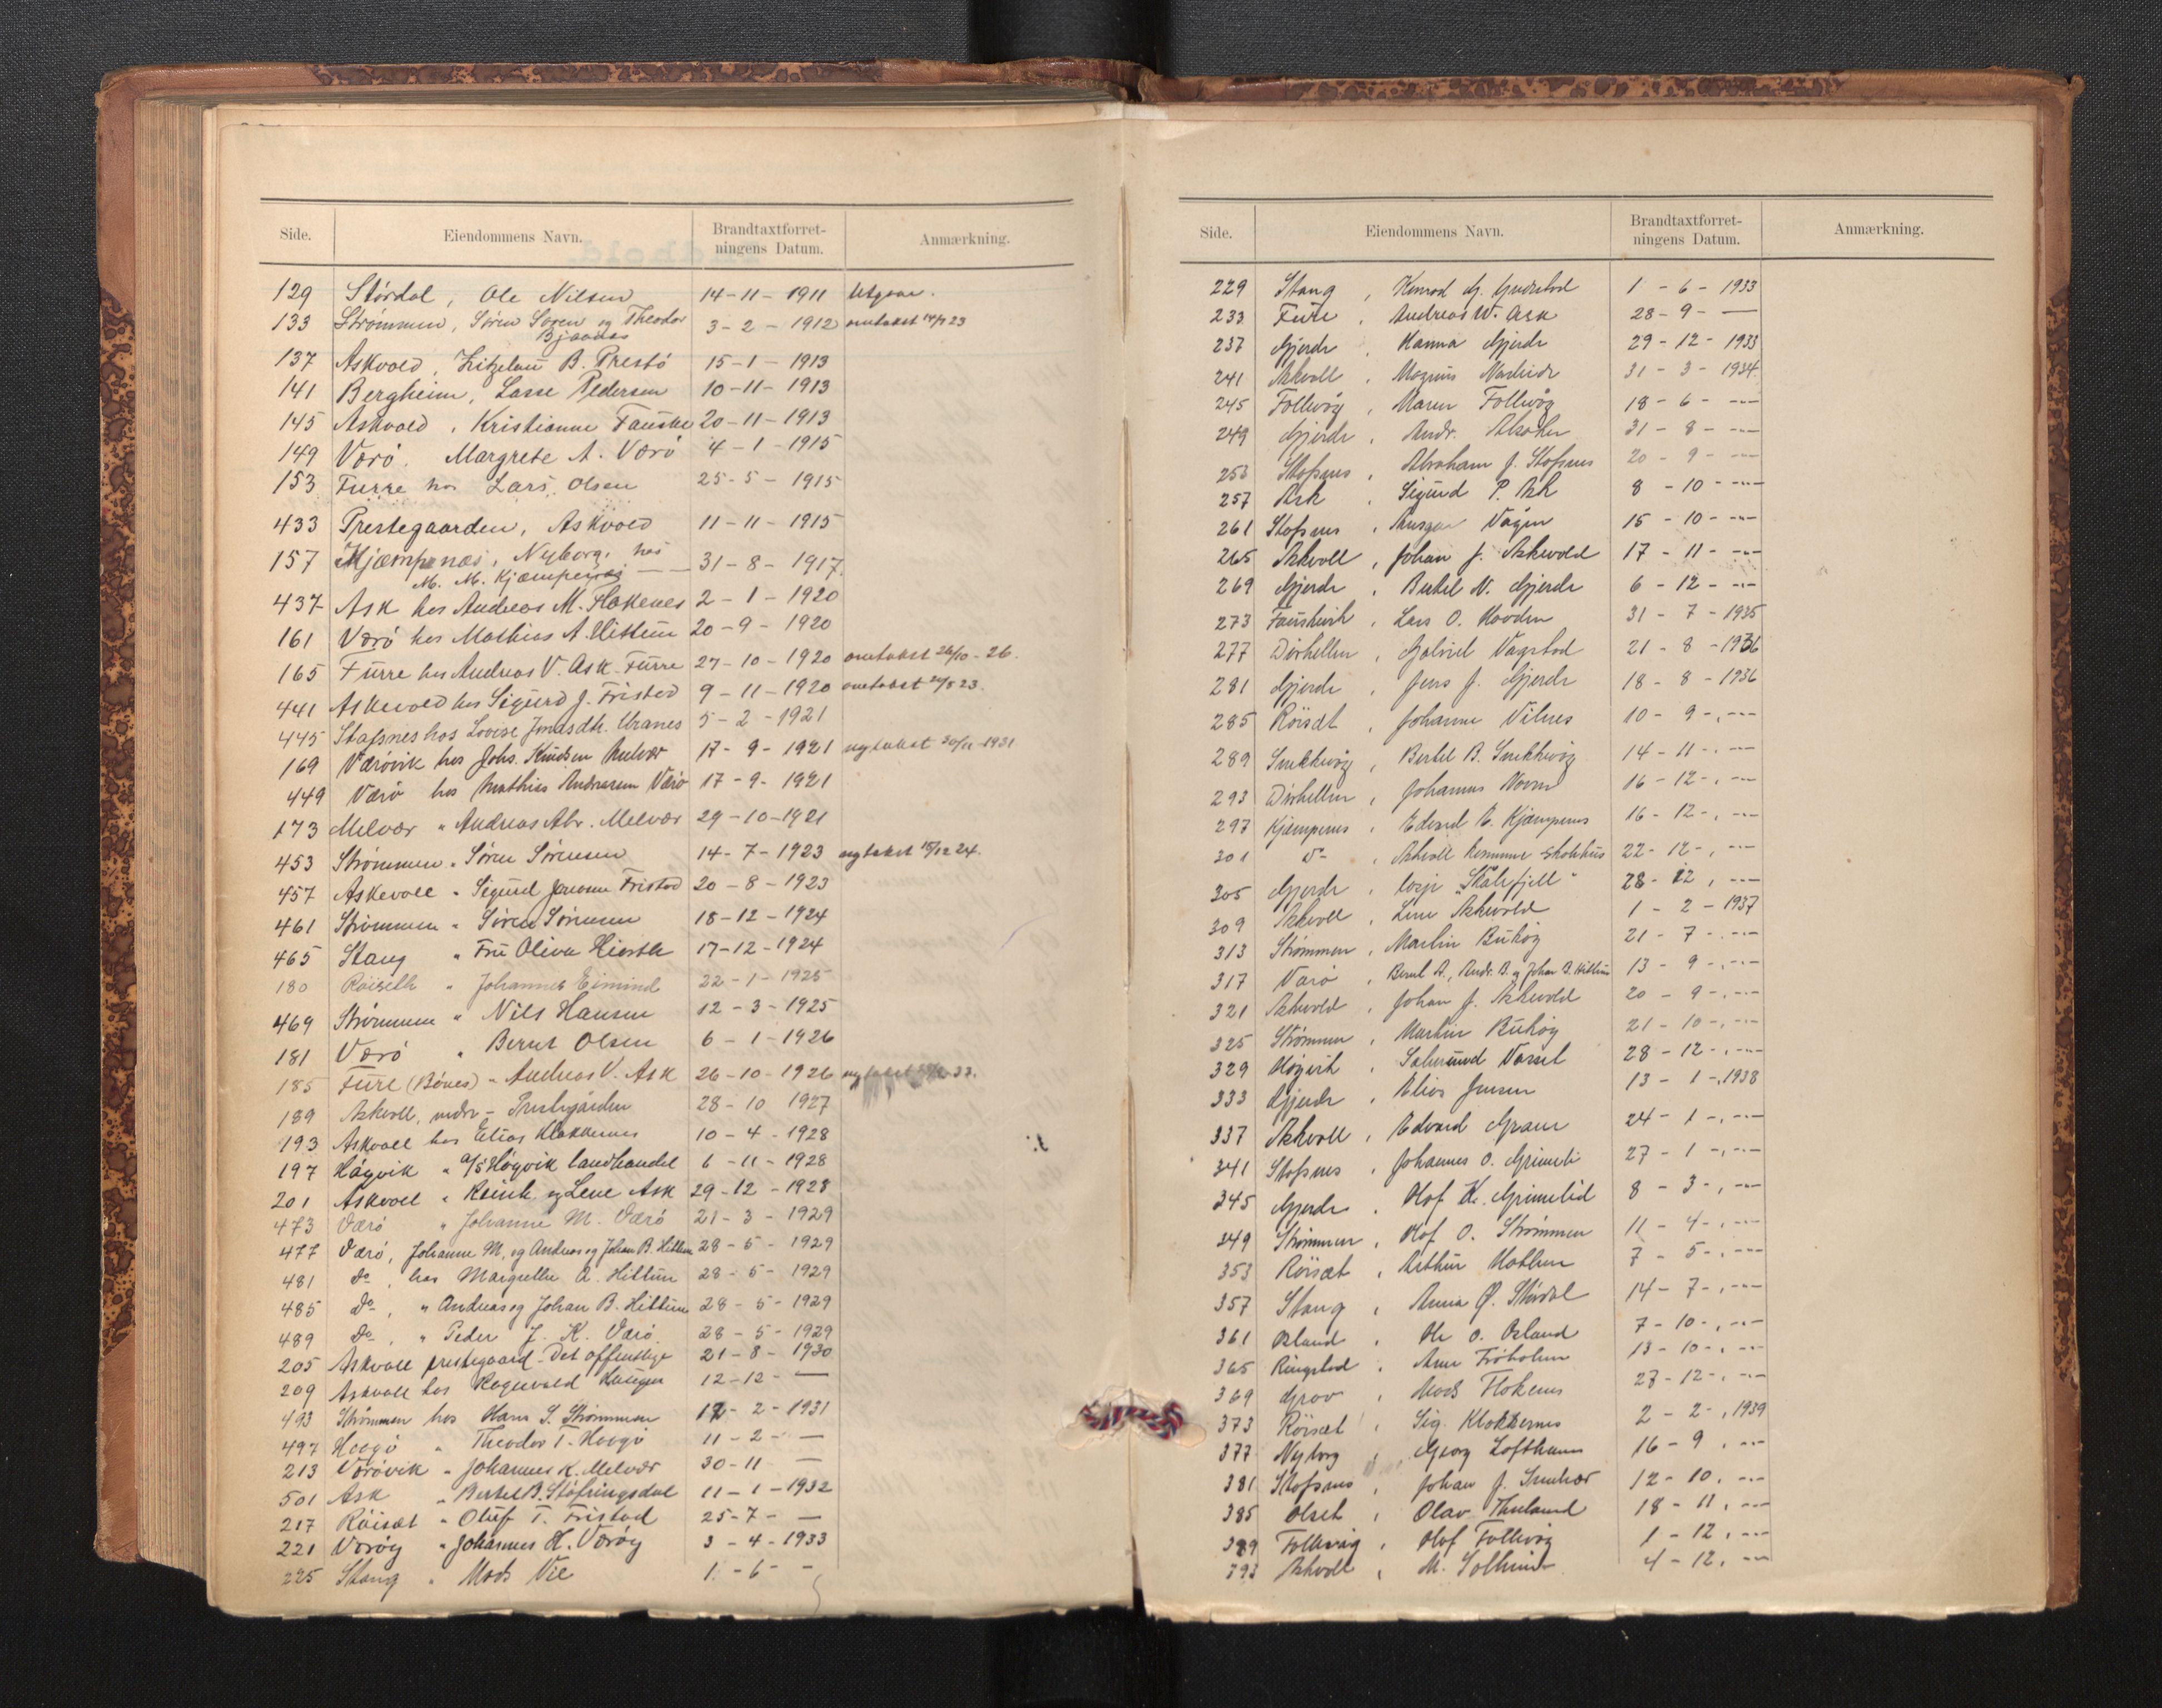 Side. Eiendommens Navn. Brandtaxtforretningens Datum. Anmærkning.
129 Stórdal, Ole Nilsen 14-11-1911 Utgaar.
133 Strømmen, Sören Soren og Theodor 3-2-1912 omtakst 14/7 23
Bjaanes
137 Askvold, B. Prestö 15-1-1913
141 Bergheim, Lasse Pedersen 10-11-1913
145 Askvold, Kristianne Fauske 20-11-1913
149 Værö. Margrete A. Værö 4-1-1915
153 Furre hos Lars Olsen 25-5-1915
433 Prestegaarden, Askvold 11-11-1915
157 Kjæmpenæs, Nyborg, hos 31-8-1917.
M. M. Kjæmpenæs
437 Ask hos Andreas M. Flokenes 2-1-1920
161 Værö hos Mathias A. Hittun 20-9-1920
165 Furre hos Andreas V. Ask. Furre 27-10-1920 omtakst 26/10-26.
441 Askevold hos Sigurd J. Fristad 9-11-1920 omtakst 20/8 23.
445 Stafsnes hos Lovise Jonasdtr. Uranes 5-2-1921
169 Værövik hos Johs. Knudsen Melvær 17-9-1921 nytakst 30/11-1931
449 Værö hos Mathias Andreasen Værö 17-9-1921
173 Melvær " Andreas Abr. Melvær 29-10-1921
453 Strömmen " Sören Sörensen 14-7-1923 nytakst 18/12 24.
457 Askevoll " Sigurd Fristad 20-8-1923
461 Strömmen " Sören Sörensen 18-12-1924
465 Stang " Fru Oliva Hierth 17-12-1924
180 Röiseth " Johannes Eimind 22-1-1925
469 Strömmen " Nils Hansen 12-3-1925
181 Værö " Bernt Olsen 6-1-1926
185 Fure (Bönes) " Andreas V. Ask 26-10-1926 nytakst 33.
189 Askvoll, nedre - Prestegården 28-10 1927
193 Askvoll hos Elias Klakkenes 10-4-1928
197 Högvik " a/s Högvik landhandel 6-11-1928
201 Askvoll " Reinh. og Lene Ask 29-12-1928
473 Værö " Johanne M. Værö 21-3-1929
477 Værö, Johanne M. og Andreas og Johan B. Hittun 28-5-1929
481 do, hos Margrethe A. Hittun 28-5-1929
485 do, " Andreas og Johan B. Hittun 28-5-1929
489 do, " Peder J. K. Værö. 28-5-1929
205 Askvoll prestegaard - Det offentlige 21-8-1930
209 Askvoll hos Ragnvald 12-12- —
493 Strömmen hos Hans S. Strömmen 12-2-1931
497 Hovgö " Theodor T. Hovgö 11-2- —
213 Værövik " Johannes K. Melvær 30-11 —
501 Ask " Bertel B. Stöfringsdal 11-1-1932
217 Röisæt " Oluf T. Fristad 25-7- —
221 Væröy " Johannes H. Væröy 3-4-1933
225 Stang " Mads Vie 1-6- -
Side. Eiendommens Navn. Brandtaxtforretningens Datum. Anmærkning.
229 Stang, Konrad 1-6-1933
233 Fure, Andreas W. Ask 28-9- —
237 Gjerde, Hanna Gjerde 29-12-1933
241 Askvoll, Magnus 31-3-1934
245 Follevåg, Maren Follevåg 18-6- ---
249 Gjerde, Andr. 31-8- ---
253 Stafsnes, Abraham J. Stafsnes 20-9- ---
257 Ask, Sigurd P. Ask 8-10- ---
261 Stafsnes, Ansgar Vågen 15-10- ---
265 Askvoll, Johan J. Askvold 17-11- ---
269 Gjerde, Bertel N. Gjerde 6-12- ---
273 Lars O. Hovden 31-7-1935
277 Dirhellen, Gabriel Vagstad 21-8-1936
281 Gjerde, Jens J. Gjerde 18-8-1936
285 Röisæt, Johanne Vilnes 10-9-, ---
289 Smekkevåg, Bertel B. Smekkevåg 14-11-, ---
293 Dirhellen, Johannes 16-12-, ---
297 Kjæmpenes, Edvard E. Kjæmpenes 16-12-, ---
301 do, Askvoll kommune skolehus 22-12-, ---
305 Gjerde, losje "Skålefjell" 28-12, ---
309 Askvoll, Lene Askvold 1-2-1937
313 Strømmen, Martin Buhög 21-7-, ---
317 Værö, Bernt A., Andr. B. og Johan B. Hittun 13-9-, ---
321 Askvold, Johan J. Askvold 20-9-, ---
325 Strømmen, Martin Buhög 21-10-, ---
329 Högvik, Salmund Vassel 28-12-, ---
333 Gjerde, Elias Jensen 13-1-, 1938
337 Askvoll, Edvard Gram 24-1-, ---
341 Stafsnes, Johannes O. Grimeli 27-1-, ---
345 Gjerde, Olof K. Grimelid 8-3-, ---
349 Strømmen, Olof O. Strømmen 11-4-, ---
353 Röisæt, Arthur 7-5-, ---
357 Stang, Anna Ø. Stórdal 14-7-, ---
361 Osland, Ole O. Osland 7-10-, ---
365 Ringstad, Arne Fröholm 13-10-, ---
369 Grov, Mads Flokenes 27-12-, ---
373 Röisæt, Sig. Klakkenes 2-2-, 1939
377 Nyborg, Georg Lofthaus 16-9, ---
381 Stafsnes, Johan J. 12-10, ---
385 Olset, Olav 18-11, ---
389 Follevåg, Olof Follevåg 1-12, ---
393 Askvoll, M. Solheim 4-12, ---